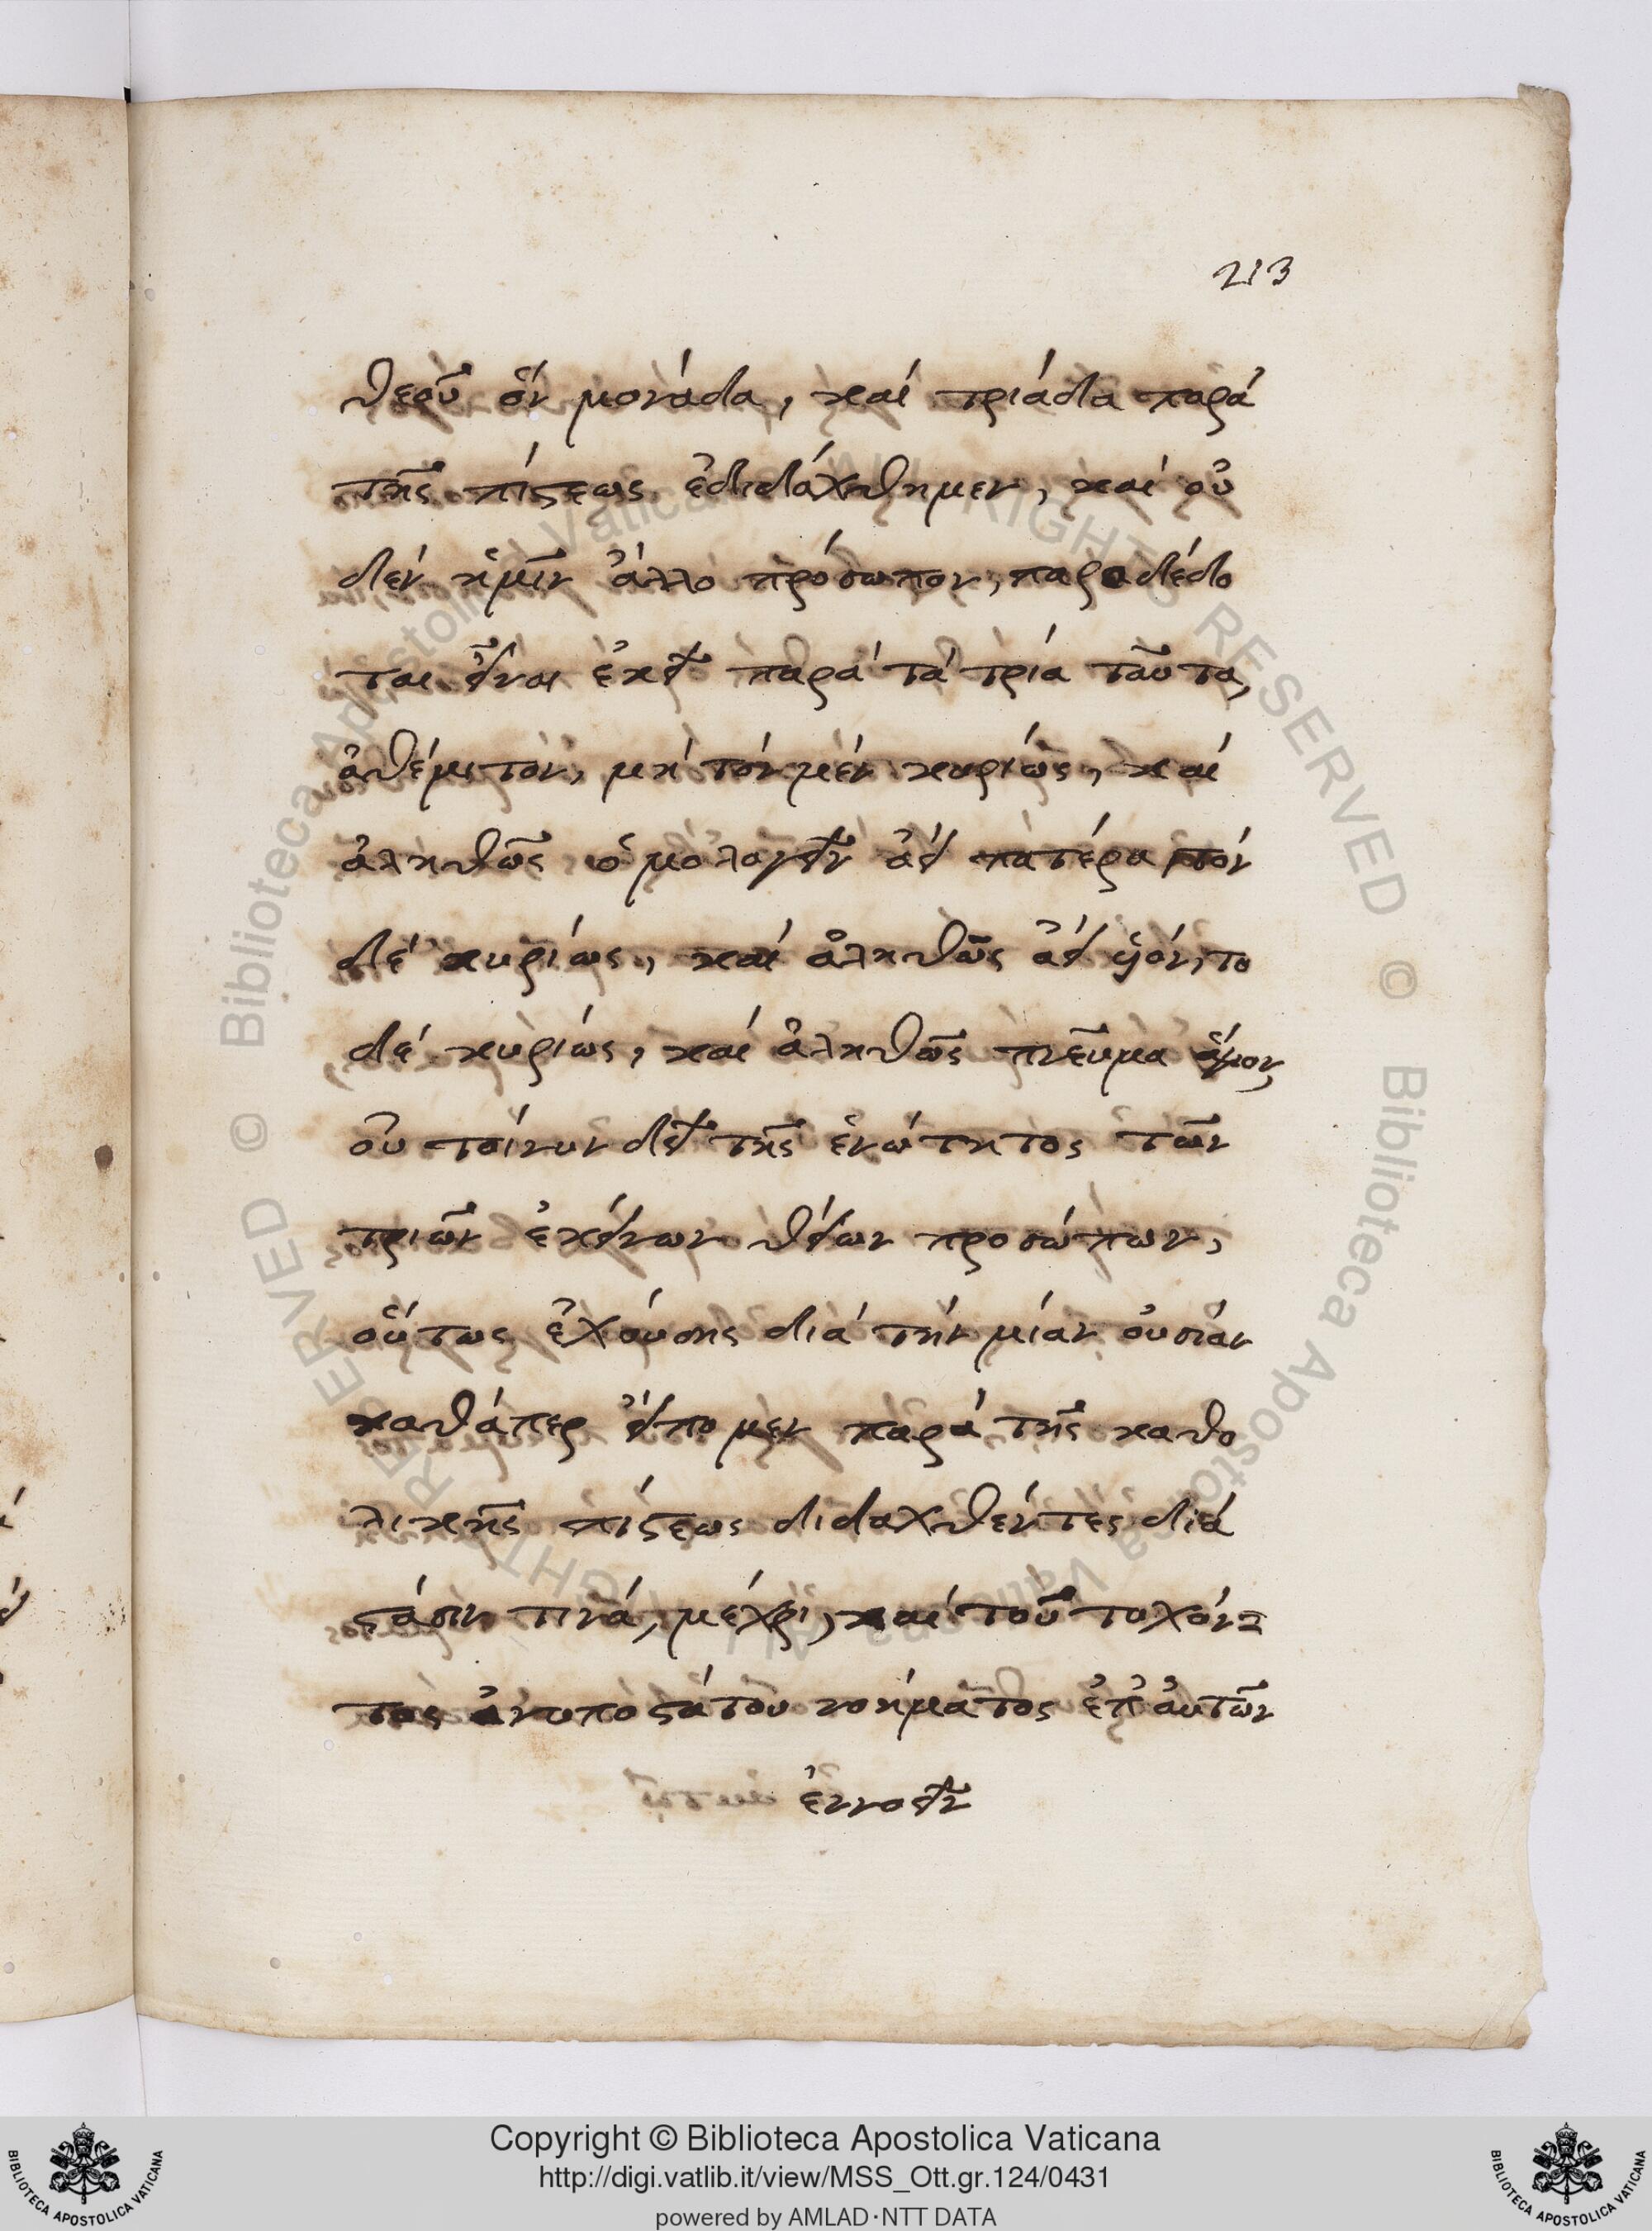 213
θεοῦ ὅν μονάδα, καί τριάδα παρά
τῆς πίστεως ἐδιδάχθημεν, καί οὐ
δέν ἡμῖν ἄλλο πρόσωπον, παραδέδο
ται εἶναι ἐκεῖ παρά τά τρία ταῦτα,
ἀθέμιτον, μή τόν μέν κυρίως, καί
ἀληθῶς ὁμολογεῖν ἀεί πατέρα τόν
δέ κυρίως, καί ἀληθῶς ἀεί ὑιόν, το
δέ κυρίως, καί ἀληθῶς πνεῦμα ἅγιον,
οὐ τοίνυν δεῖ τῆς ἑνώτητος τῶν
τριῶν ἐκείνων θείων προσώπων,
οὕτως ἐχούσης διά τήν μίαν οὐσίαν
καθάπερ εἴπομεν παρά τῆς καθο
λικῆς πίστεως διδαχθέντες διά
στάσιν τινά, μέχρι, καί τοῦ τυχόν-
τος ἀνυποστάτου νοήματος ἐπ' αὐτῶν
ἐννοεῖν
Copyright © Biblioteca Apostolica Vaticana
http://digi.vatlib.it/view/MSS_Ott.gr.124/0431
powered by AMLAD·NTT DATA
BIBLIOTECA APOSTOLICA VATICANA
BIBLIOTECA APOSTOLICA VATICANA